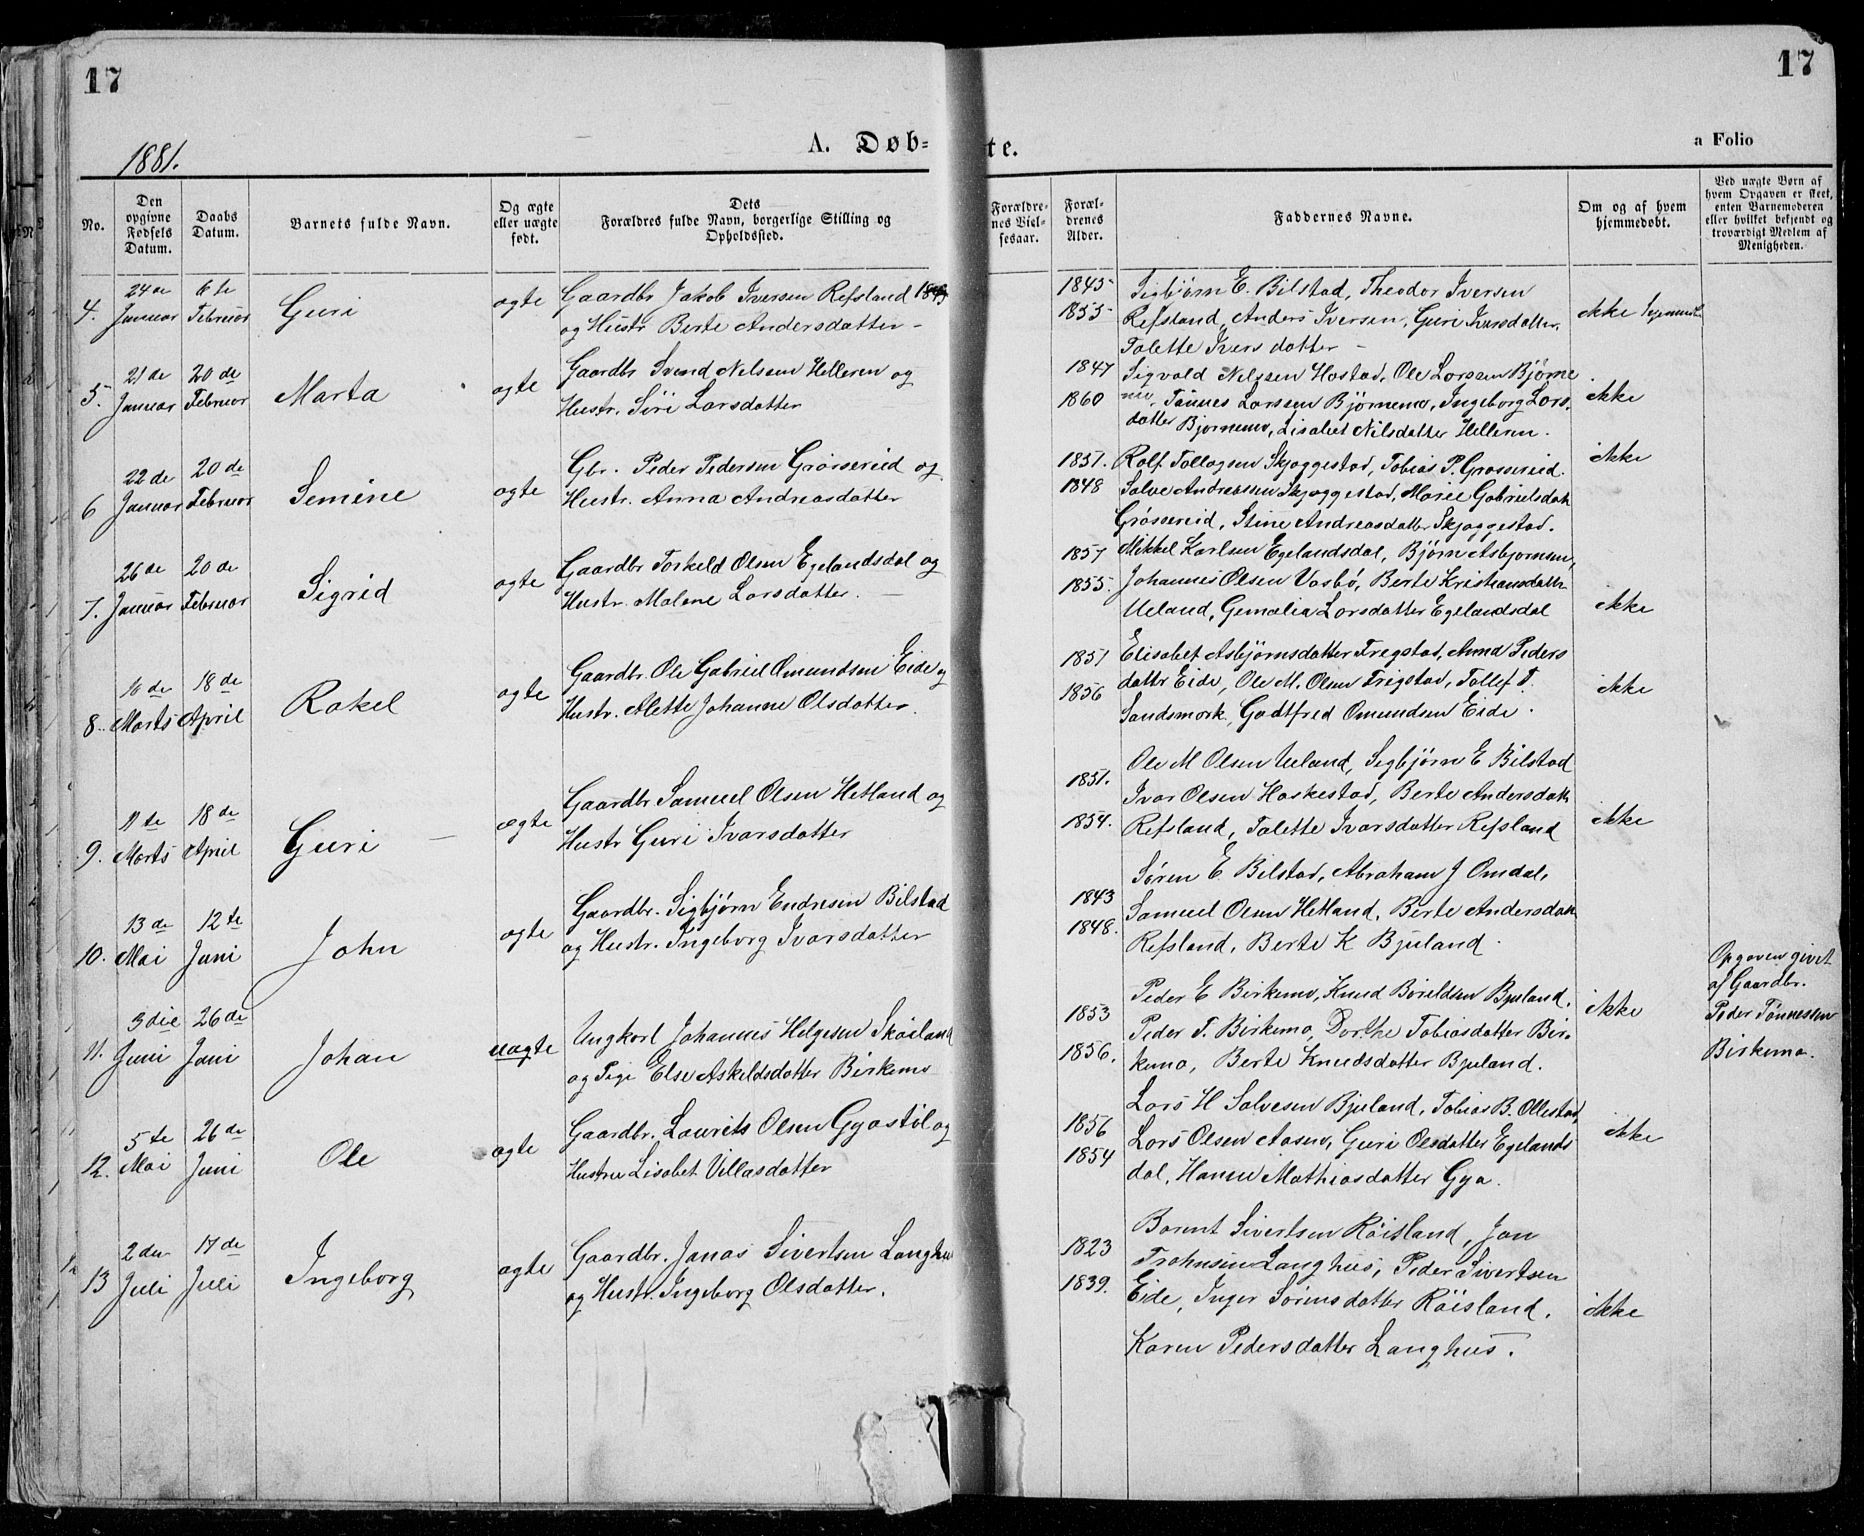 17
17
1881.
A. Døb-
te.
a Folio
No.
Den opgivne Fødsels Datum.
Daabs Datum.
Barnets fulde Navn.
Og ægte eller uægte født.
Dets Forældres fulde Navn, borgerlige Stilling og Opholdssted.
Forældre-nes Viel-sesaar.
Foræl-drenes Alder.
Faddernes Navne.
Om og af hvem hjemmedøbt.
Ved uægte Børn af hvem Opgaven er skeet, enten Barnemoderen eller hvilket bekjendt og troværdigt Medlem af Menigheden.
4. 24de Januar 6te Februar Guri ægte
Gaardbr Jakob Iversen Refsland
og Hustr Berte Andersdatter -
1845
1855
Sigbjørn E. Bilstad, Theodor Iversen
Refsland, Anders Iversen, Guri Iversdatter,
Talette Iversdatter -
ikke
5. 21de Januar 20de Februar Marta ægte
Gaardbr Svend Nilssen Helleren og
Hustr. Siri Larsdatter
1847
1860
Sigvald Nilssen Hastad, Ole Larssen Bjørne
mo, Tønnes Larssen Bjørnemo, Ingeborg Lars-
datter Bjørnemo, Lisabet Nilsdatter Helleren.
ikke
6 22de Januar 20de Februar Semine ægte
Gbr. Peder Pedersen Grøssereid og
Hustr. Anna Andreasdatter
1851.
1848
Rolf Tollagsen Skjaggestad, Tobias P. Grøssereid.
Salve Andreassen Skjæggestad, Marie Gabrielsdatt
Grøssereid, Stine Andreasdatter Skjæggestad.
ikke
7. 26de Januar 20de Februar Sigrid ægte
Gaardbr Torkeld Olsen Egelandsdal og
Hustr. Malene Larsdatter. -
1857
1855.
Mikkel Karlsen Egelandsdal, Bjørn Asbjørnsen,
Johannes Olsen Vasbø, Berte Kristiansdatter
Ueland, Gemalia Larsdatter Egelandsdal
ikke
8. 16de Marts 18de April Rakel ægte
Gaardbr. Ole Gabriel Omundsen Eide og
Hustr. Alette Johanne Olsdatter.
1851
1856
Elisabet Asbjørnsdatter Fregstad, Anna Peders
datter Eide, Ole M. Olsen Frigstad, Tollef T.
Sandsmark, Godtfred Omundsen Eide.
ikke
9. 11te Marts 18de April Guri - ægte
Gaardbr Samuel Olsen Hetland og
Hustr Guri Ivarsdatter
1851.
1854.
Ole M Olsen Ueland, Sigbjørn E Bilstad
Ivar Olsen Haskestad, Berte Andersdatt
Refsland, Talette Ivarsdatter Refsland
ikke
10. 13de Mai 12te Juni John ægte
Gaardbr. Sigbjørn Endresen Bilstad
og Hustr. Ingeborg Ivarsdatter
1843
1848.
Søren E. Bilstad, Abraham J Omdal,
Samuel Olsen Hetland, Berte Andersdatt
Refsland, Berte K Bjuland.
11. 3die Juni 26de Juni Johan uægte
Ungkarl Johannes Helgesen Skåiland
og Pige Else Askildsdatter Birkemo
1853
1856.
Peder E Birkemo, Knud Båreldsen Bjuland.
Peder T. Birkemo, Dorthe Tobiasdatter Bir-
kemo, Berte Knudsdatter Bjuland.
ikke
Opgaven givet
af Gaardbr.
Peder Tønnessen
Birkemo.
12. 5te Mai 26de Juni Ole ægte
Gaardbr. Laurits Olsen Gyastøl og
Hustru Lisabet Villasdatter
1856
1854
Lars H Salvesen Bjuland, Tobias B. Ollestad,
Lars Olsen Aasen, Guri Olsdatter Egelands
dal, Hanne Mathiasdatter Gya.
ikke
13 2den Juli 17de Juli Ingeborg ægte
Gaardbr. Jonas Sivertsen Langhus
og Hustr. Ingeborg Olsdatter.
1823
1839.
Barent Sivertsen Røisland, Jon
Langhus, Peder Sivertsen
Eide, Inger Sørensdatter Røisland.
Karen Pedersdatter Langhus.
ikke